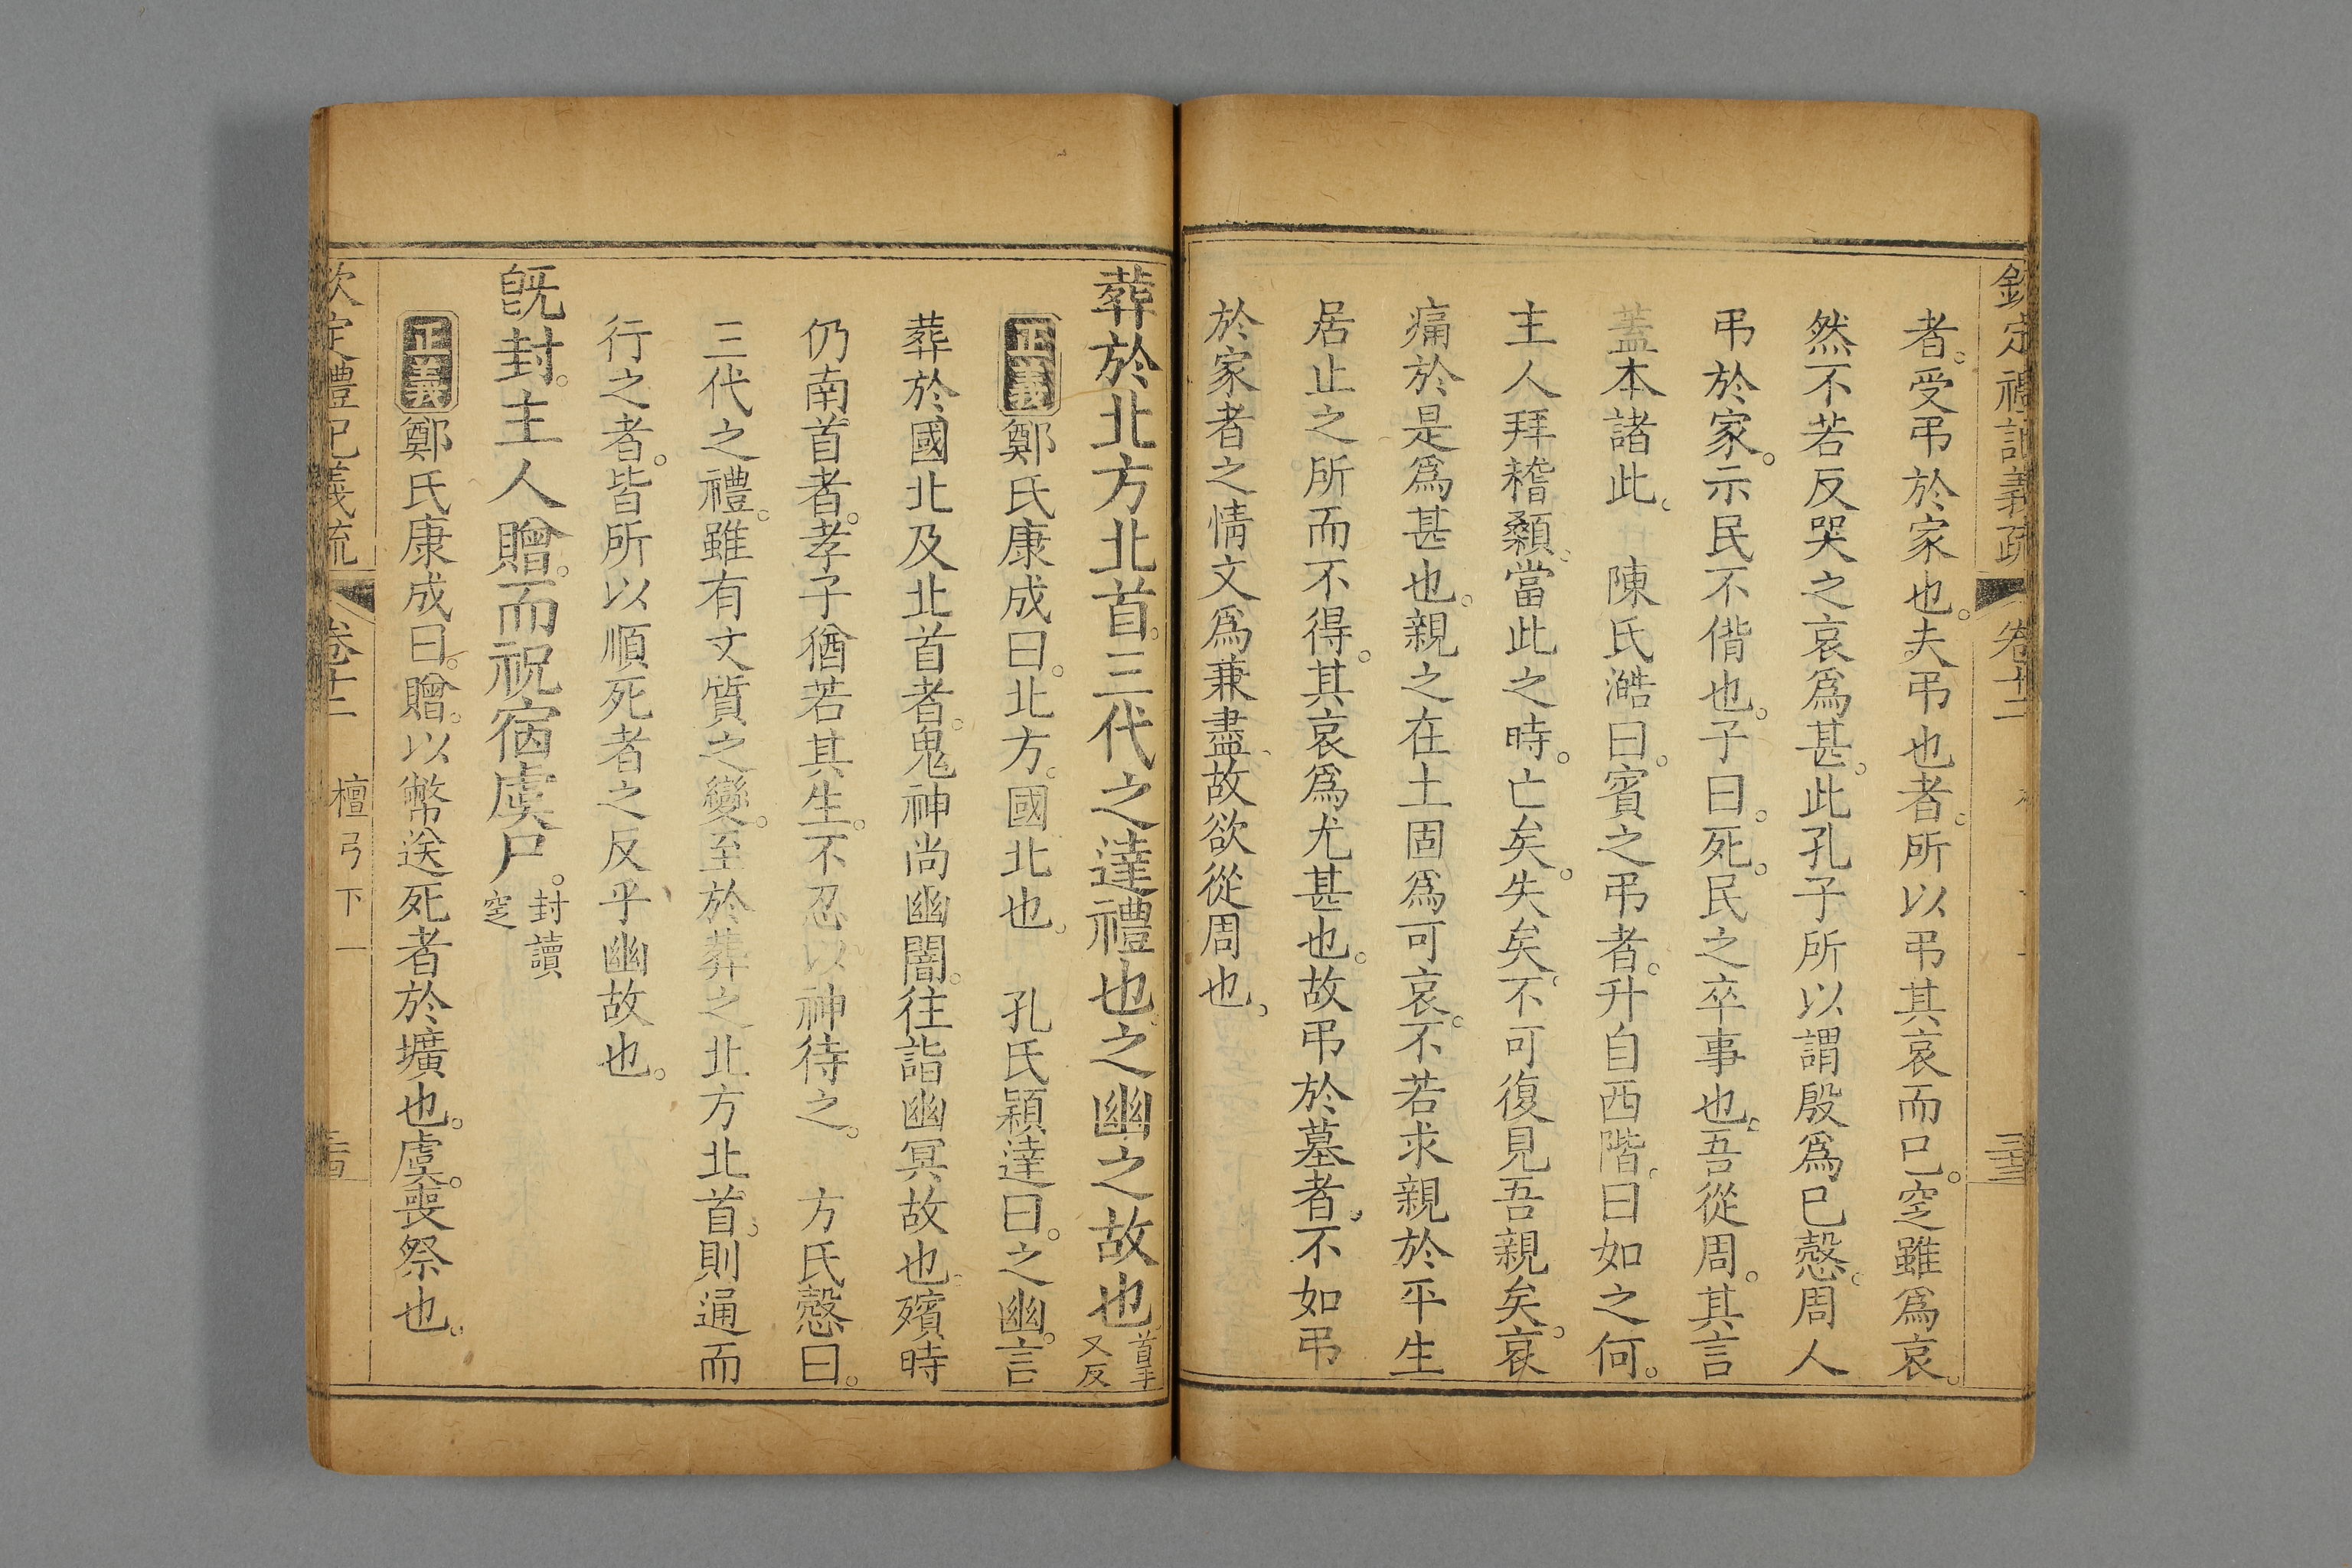 欽定禮記義疏 卷十二
者。受弔於家也。夫弔也者。所以弔其哀而已。窆雖爲哀。
然不若反哭之哀爲甚。此孔子所以謂殷爲已慤。周人
弔於家。示民不偝也。子曰。死。民之卒事也。吾從周。其言
蓋本諸此。 陳氏澔曰。賓之弔者。升自西階。曰如之何。
主人拜稽顙。當此之時。亡矣。失矣。不可復見吾親矣。哀
痛於是爲甚也。親之在土固爲可哀。不若求親於平生
居止之所而不得。其哀爲尤甚也。故弔於墓者。不如弔
於家者之情文爲兼盡。故欲從周也。
葬於北方北首。三代之達禮也。之幽之故也。首手又反
正義鄭氏康成曰。北方。國北也。 孔氏穎達曰。之幽。言
葬於國北及北首者。鬼神尚幽闇。往詣幽冥故也。殯時
仍南首者。孝子猶若其生。不忍以神待之。 方氏慤曰。
三代之禮。雖有文質之變。至於葬之北方北首。則通而
行之者。皆所以順死者之反乎幽故也。
旣封。主人贈。而祝宿虞尸。封讀窆
正義鄭氏康成曰。贈。以幣送死者於壙也。虞。喪祭也。
欽定禮記義疏 卷十二 檀弓下一